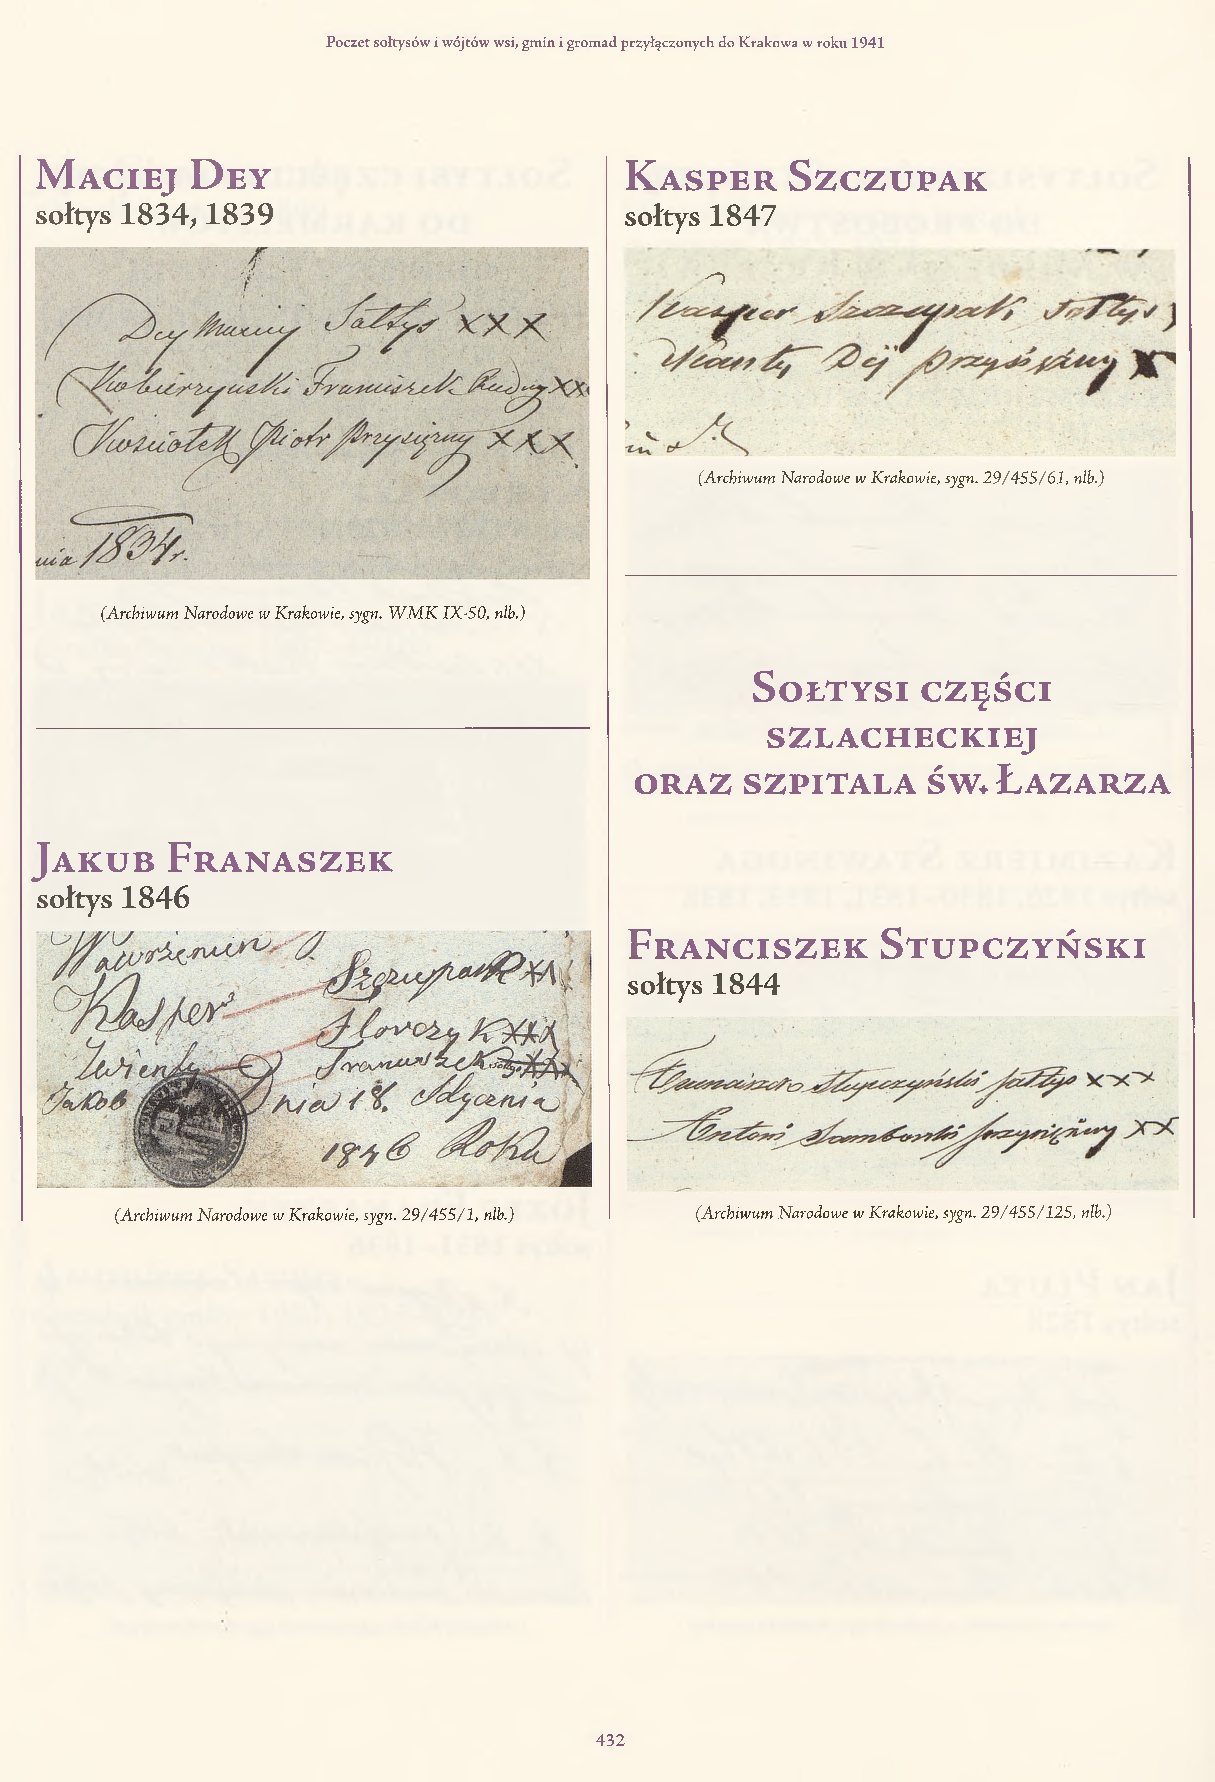 Poczet sołtysów i wójtów wsi, gmin i gromad przyłączonych do Krakowa w roku 1941
Maciej Dey
sołtys 1834, 1839
Dey Maciej Sołtys XXX
Kobierzyński Franciszek Radny XX
Kwosciołek Piotr Przysiężny XXX
nia 1834 r.
(Archiwum Narodowe w Krakowie, sygn. WMK IX-50, nlb.)
Jakub Franaszek
sołtys 1846
Wawrzeniun
Kasper Szczupak XX
Florczyk XXX
Franaszek XXX
Jakob Dnia 18. Stycznia
1846 Roku
(Archiwum Narodowe w Krakowie, sygn. 29/455/1, nlb.)
Kasper Szczupak
sołtys 1847
Kasper Szczupak Sołtys
Kanty Dej przysiężny X
(Archiwum Narodowe w Krakowie, sygn. 29/455/61, nlb.)
Sołtysi części
szlacheckiej
oraz szpitala św. Łazarza
Franciszek Stupczyński
sołtys 1844
Franciszek Stupczyński sołtys XXX
Antoni przysiężny XX
(Archiwum Narodowe w Krakowie, sygn. 29/455/125, nlb.)
432